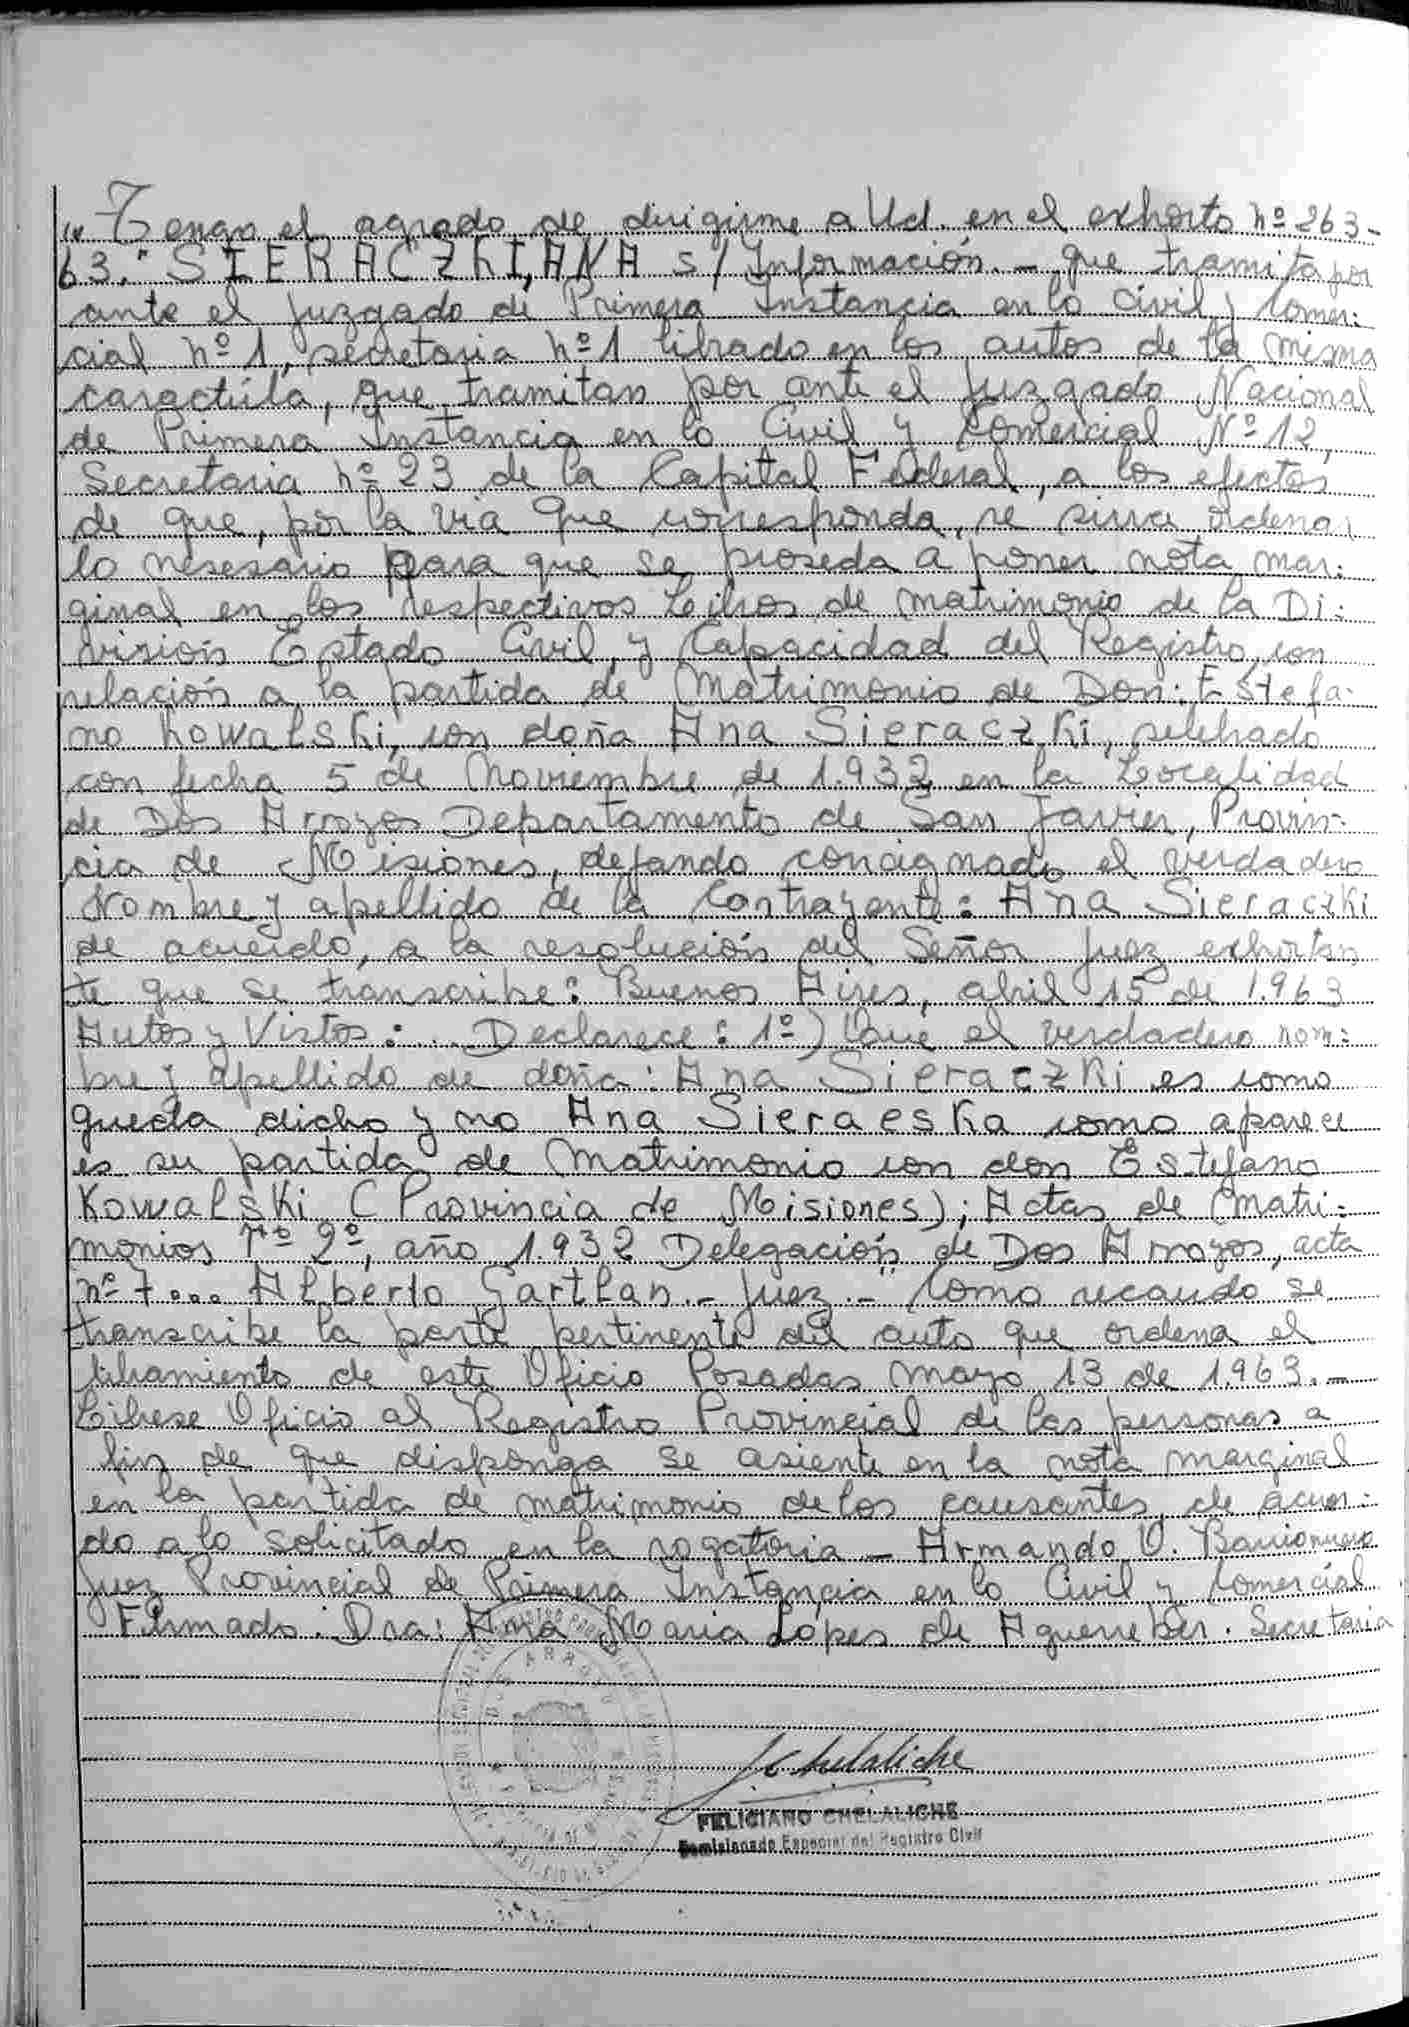 " Tengo el agrado de dirigirme a Ud. en el exhorto nº 263-
63. " SIERACZKI, ANA s/ Información. - que tramita por
ante el Juzgado de Primera Instancia en lo Civil y Comer-
cial nº 1, secretaria nº 1 librado en los autos de la misma
caractúla, que tramitan por ante el Juzgado Nacional
de Primera Instancia en lo Civil y Comercial Nº 12,
Secretaria nº 23 de la Capital Federal, a los efectos
de que, por la via que corresponda, se sirva ordenar
lo nesesario para que se proseda a poner nota mar-
ginal en los respectivos Libros de matrimonio de la Di-
visión Estado Civil, y Capacidad del Registro, con
relación a la partida de Matrimonio de Don: Estefa-
no Kowalski, con doña Ana Sieraczki, selebrado
con fecha 5 de Noviembre de 1.932 en la Localidad
de Dos Arroyos Departamento de San Javier, Provin-
cia de Misiones, dejando concignado el verdadero
Nombre y apellido de la Contrayente: Ana Sieraczki
de acuerdo, a la resolución del Señor Juez exhortan
te que se transcribe: Buenos Aires, abril 15 de 1.963
Autos y Vistos: ... Declarece: 1º) Que el verdadero nom-
bre y apellido de doña: Ana Sieraczki es como
queda dicho y no Ana Sieraeska como aparece
es su partida de Matrimonio con don Estefano
Kowalski (Provincia de Misiones); Actas de Matri-
monios Tº 2º, año 1.932 Delegación de Dos Arroyos, acta
nº 7 ... Alberto Gartlan. - Juez. - " Como recaudo se
transcribe la parte pertinente del auto que ordena el
libramiento de este Oficio Posadas mayo 13 de 1.963. -
Líbrese Oficio al Registro Provincial de las personas a
fin de que disponga se asiente en la nota marginal
en la partida de matrimonio de los causantes, de acuer-
do a lo solicitado en la rogatoria - Armando O. Barrionuevo
Juez Provincial de Primera Instancia en lo Civil y Comercial
Firmado. Dra: Ana Maria Lópes de Aguerreber. Secretaria
FELICIANO CHELALICHE
Comisionado Especial del Registro Civil